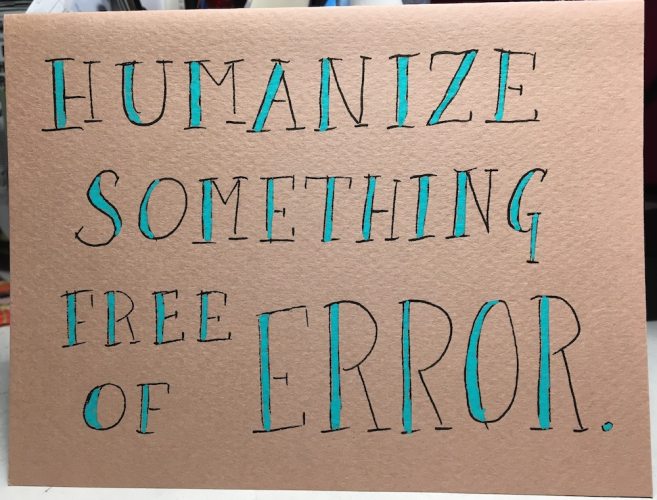 HUMANIZE
SOMETHING
FREE
OF ERROR.